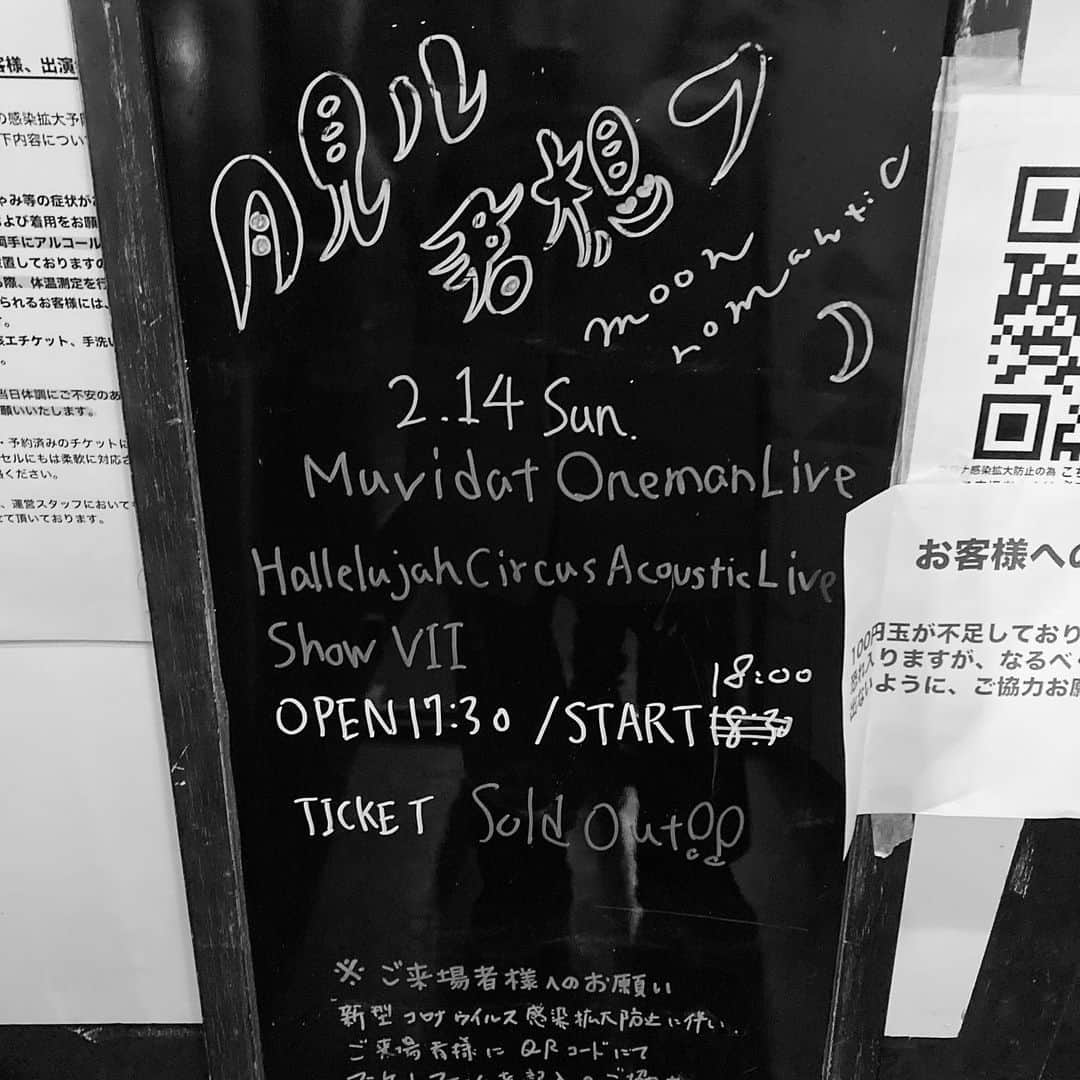 月見ル君想フ
moon
romantic
2.14 Sun.
Muvidat OnemanLive
Hallelujah Circus Acoustic Live
Show VII
18:00
OPEN 17:30 / START 18:30
TICKET Sold Out!!
※ ご来場者様へのお願い
新型コロナウイルス感染拡大防止に伴い、
ご来場者様にQRコードにて
客様、出演
の感染拡大予防
下内容につい
ゃみ等の症状が
および着用をお願
両手にアルコール
置しておりますの
る際、体温測定を行
られるお客様には、
す。
エチケット、手洗い
。
当日体調にご不安のあ
願いいたします。
・予約済みのチケットに
セルにもは柔軟に対応さ
ください。
、運営スタッフにおいても
せて頂いております。
感染拡大防止の為 こち
お客様への
100円玉が不足しており
恐れ入りますが、なるべく
出ないように、ご協力お願